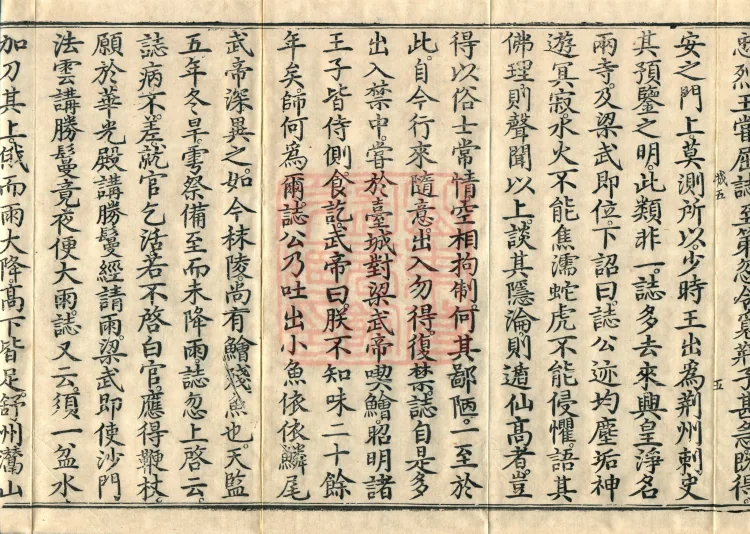 忠烈王嘗屈誌至第忽令覓荊子甚急既得。
安之門上。莫測所以。少時王出為荊州刺史
其預鑒之明。此類非一。誌多去來興皇淨名
兩寺。及梁武即位。下詔曰。誌公迹均塵垢神
遊冥寂。水火不能焦濡蛇虎不能侵懼。語其
佛理則聲聞以上。談其隱淪。則遁仙高者。豈
得以俗士常情空相拘制。何其鄙陋。一至於
此。自今行來隨意。出入勿得復禁。誌自是多
出入禁中。嘗於臺城對梁武帝喫鱠。昭明諸
王子皆侍側。食訖。武帝曰。朕不知味二十餘
年矣。師何為爾誌公乃吐出小魚依依鱗尾
武帝深異之。如今秣陵尚有鱠殘魚也。天監
五年冬旱。雩祭備至而未降雨誌忽上啓云。
誌病不差。就官乞活若不啓白官。應得鞭杖。
願於華光殿講勝鬘經請雨。梁武即使沙門
法雲講勝鬘竟夜便大雨。誌又云。須一盆水
加刀其上。俄而雨大降。高下皆足。舒州灊山
五